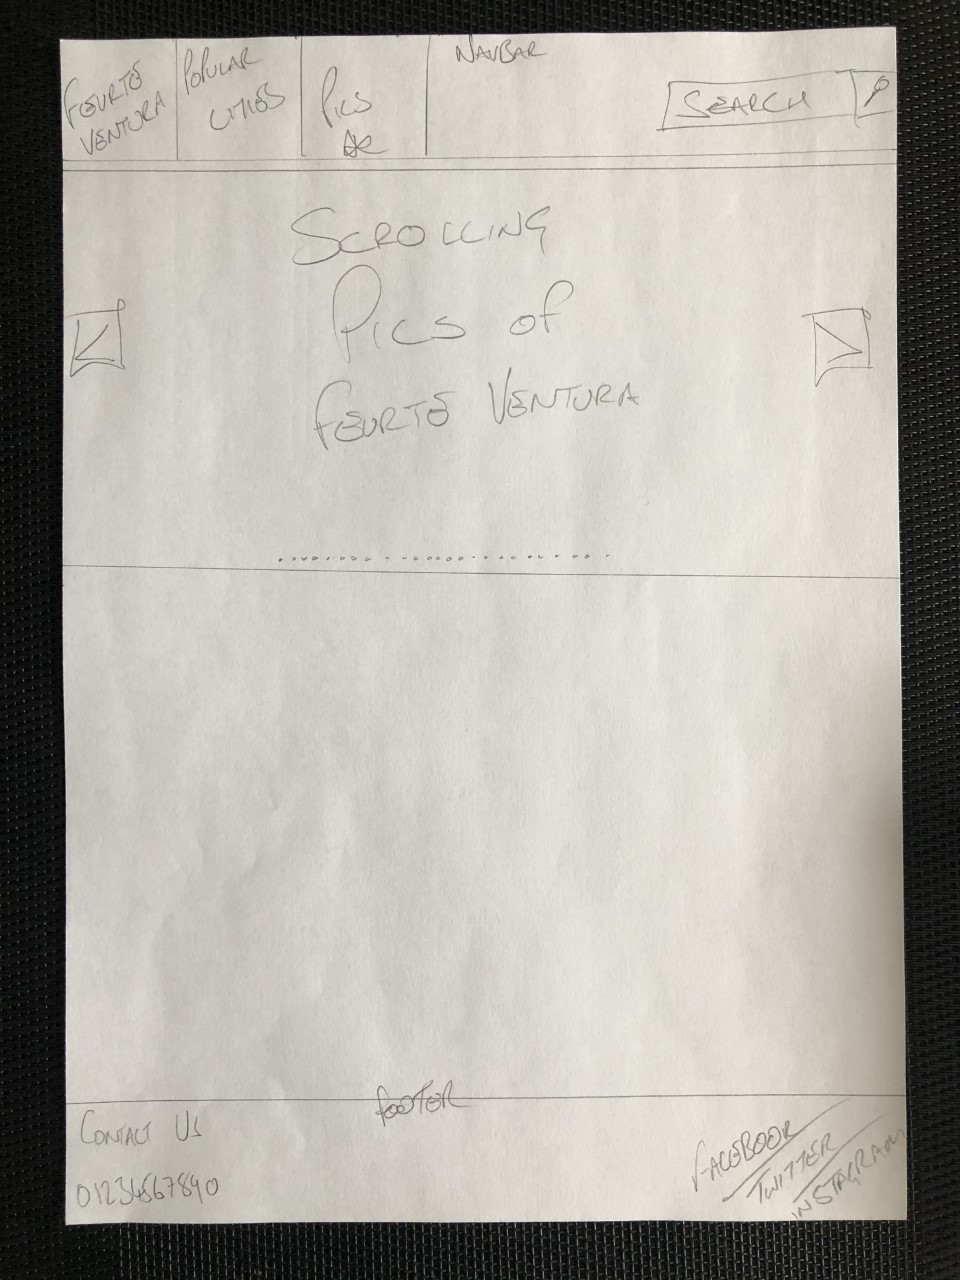 FEURTE
VENTURA
POPULAR
CITIES
PICS
NAVBAR
SEARCH
SCROLLING
PICS OF
FEURTE VENTURA
FOOTER
CONTACT US
01234567890
FACEBOOK
TWITTER
INSTAGRAM